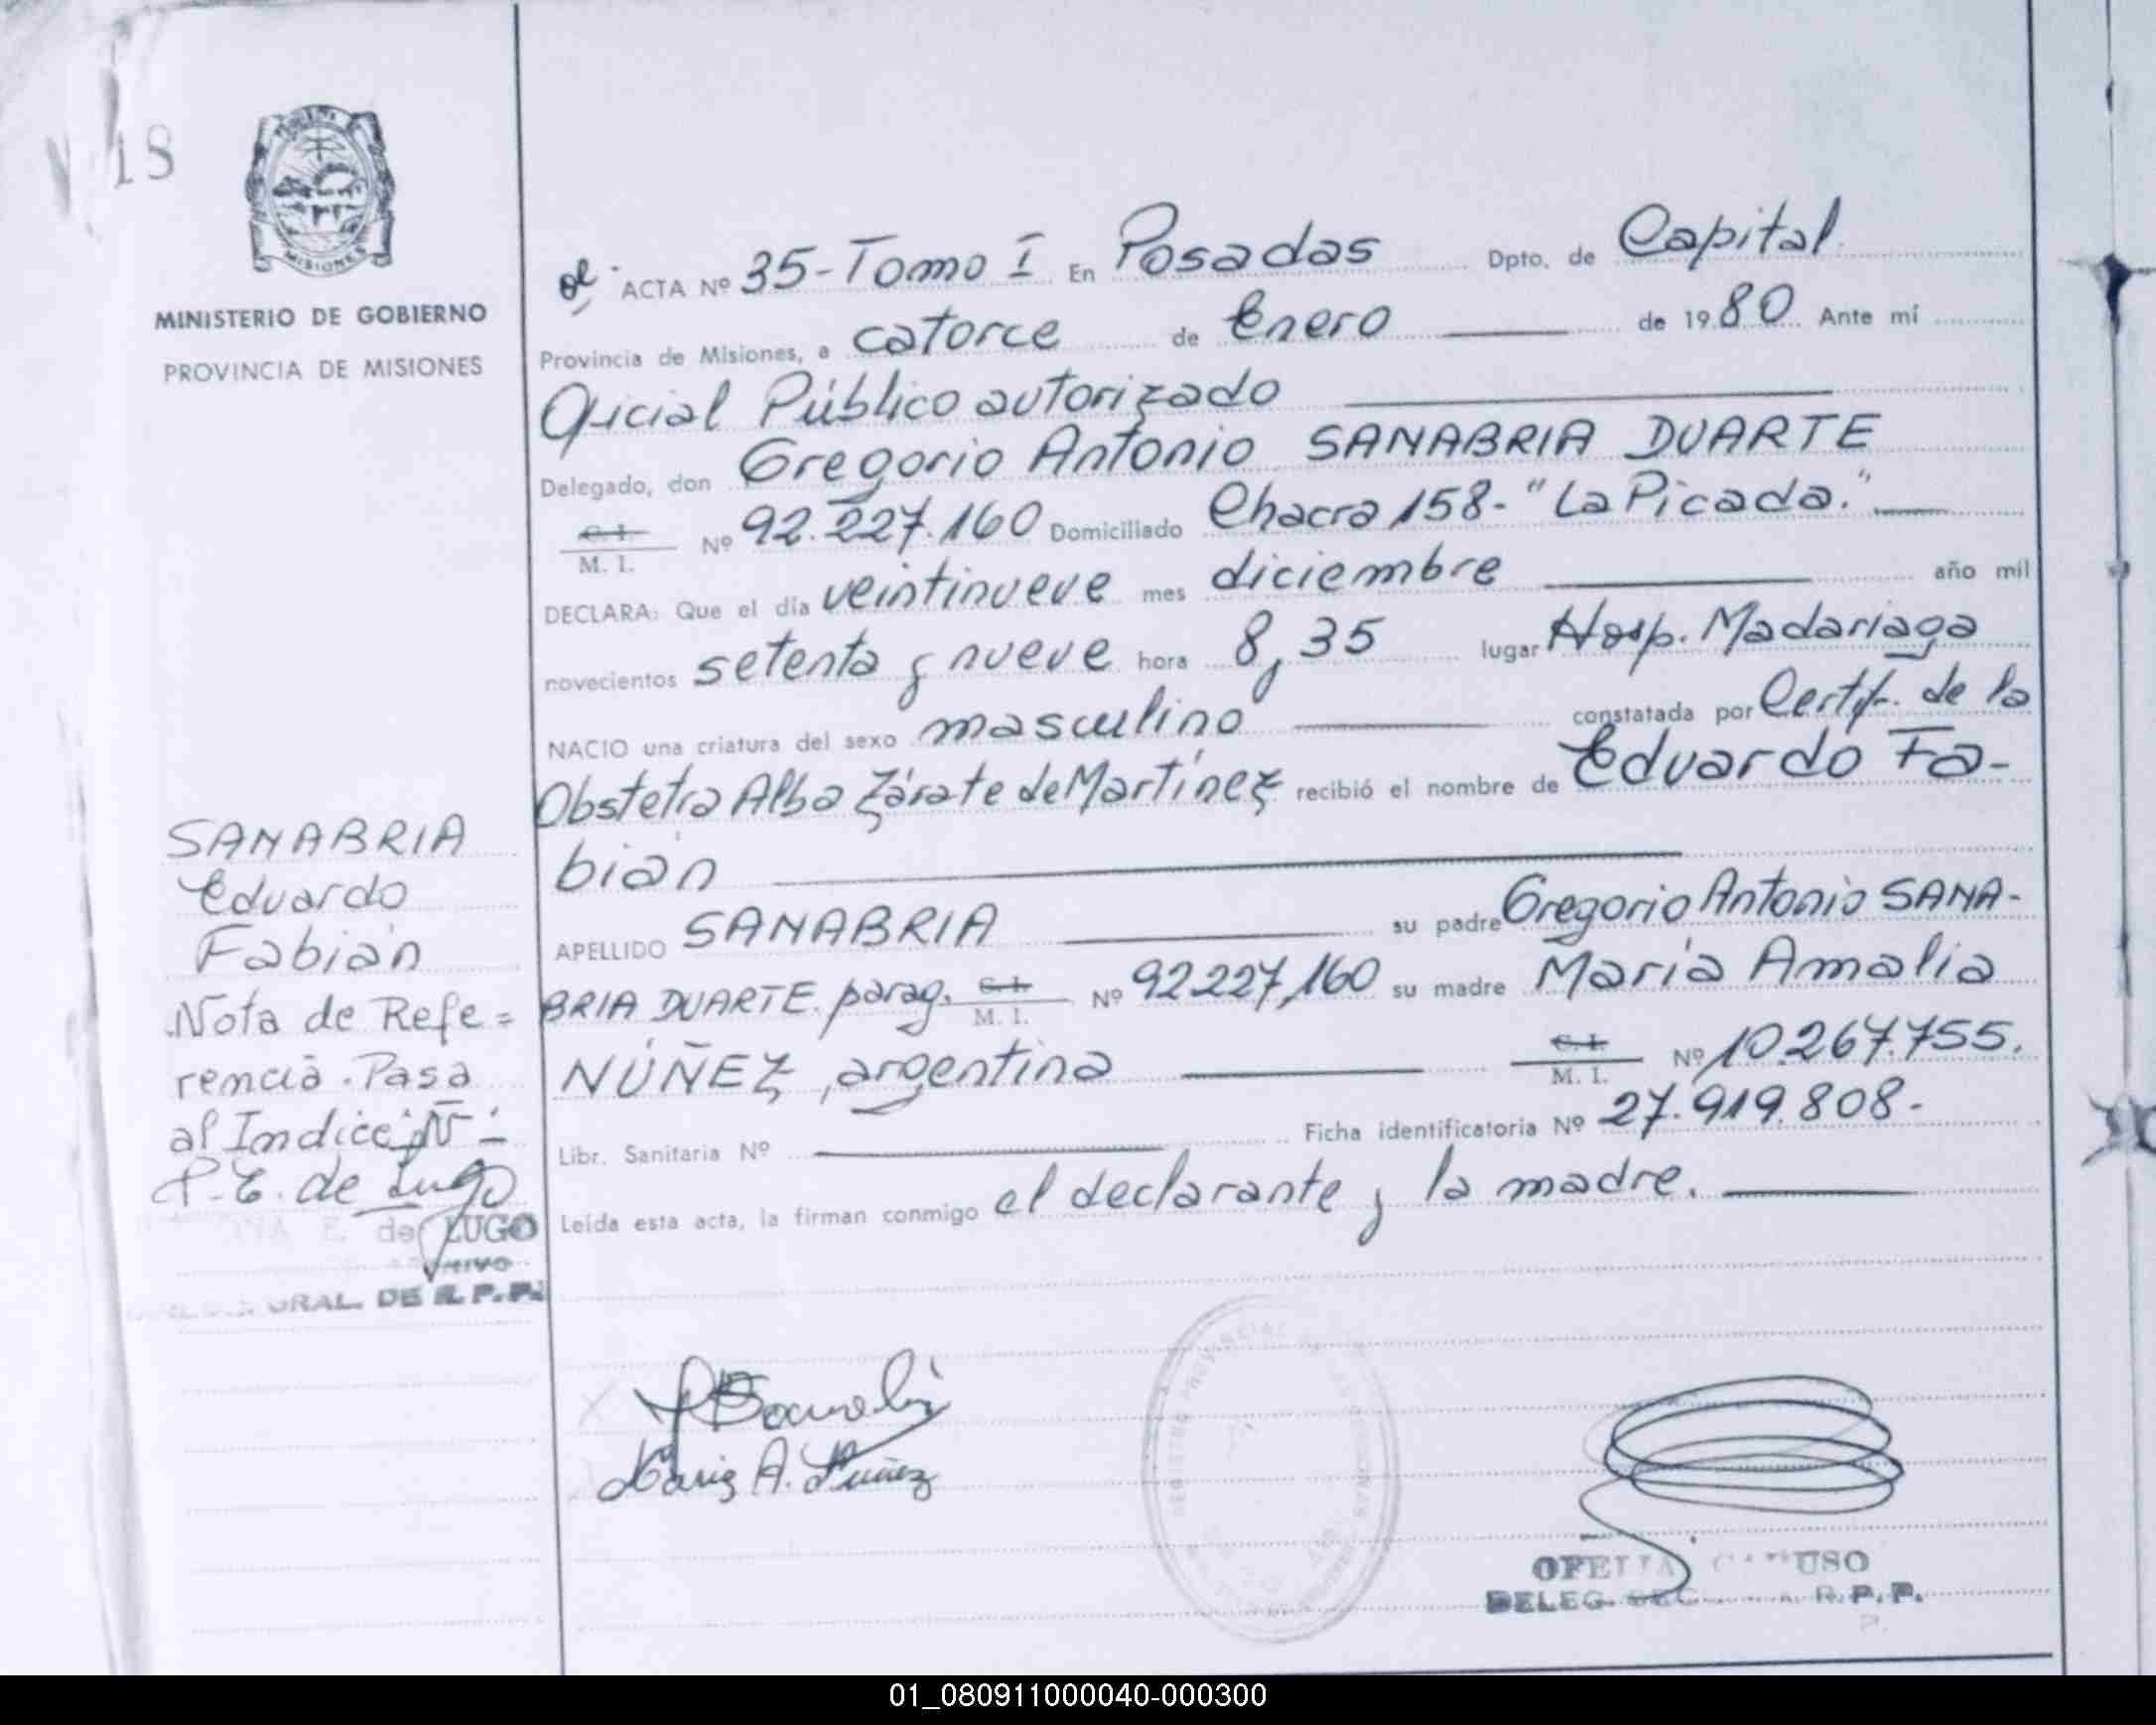 18
MISIONES
MINISTERIO DE GOBIERNO
PROVINCIA DE MISIONES
ACTA Nº 35-Tomo I En Posadas Dpto. de Capital
Provincia de Misiones, a catorce de Enero de 1980 Ante mí
Oficial Público autorizado
Delegado, don Gregorio Antonio SANABRIA DUARTE
C. I.
M. I. Nº 92.227.160 Domiciliado Chacra 158-"La Picada."
DECLARA: Que el día veintinueve mes diciembre año mil
novecientos setenta y nueve hora 8,35 lugar Hosp. Madariaga
NACIO una criatura del sexo masculino constatada por Certif. de la
Obstetra Alba Zárate de Martínez recibió el nombre de Eduardo Fa-
bián
APELLIDO SANABRIA su padre Gregorio Antonio SANA-
BRIA DUARTE. parag. C. I. M. I. Nº 92227,160 su madre María Amalia
NÚÑEZ, argentina C. I. M. I. Nº 10.267.755.
Libr. Sanitaria Nº Ficha identificatoria Nº 27.919.808-
Leída esta acta, la firman conmigo el declarante y la madre.
SANABRIA
Eduardo
Fabián
Nota de Refe=
rencia. Pasa
al Indice Ñ
P. E. de Lugo
E. de LUGO
DE R. P. P.
Maria A. Nuñez
OFELIA CARUSO
DELEG. R. P. P.
01_080911000040-000300